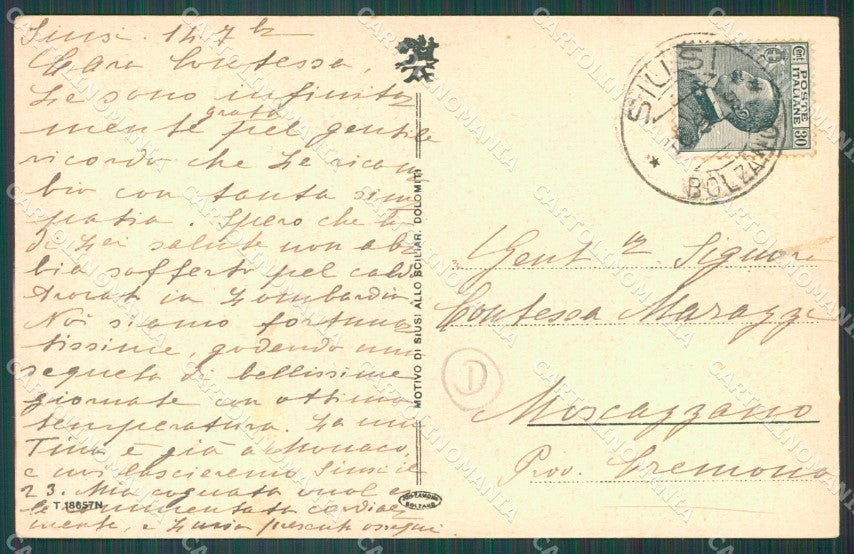 Siusi. 14.7bre
Cara Contessa,
Le sono infinita
grata
mente pel gentile
ricordo che Le ricam
bio con tanta sim
patia. Spero che la
di Lei salute non ab
bia sofferto pel caldo
in Lombardia.
Noi siamo fortuna
tissime, godendo una
sequela di bellissime
giornate con ottima
temperatura. La mia
Tina è già a Monaco,
e noi lasceremo Siusi il
23. Mia cognata vuol es
commentata cordial
mente, e Luisa presenta ossequi
T. 18657N
MOTIVO DI SIUSI ALLO SCILIAR. DOLOMITI
BOLZANO
SIUSI
BOLZANO
Cent. 30
POSTE ITALIANE
Gent.ma Signora
Contessa Marazzi
D
Moscazzano
Prov. Cremona
CARTOLINOMANIA